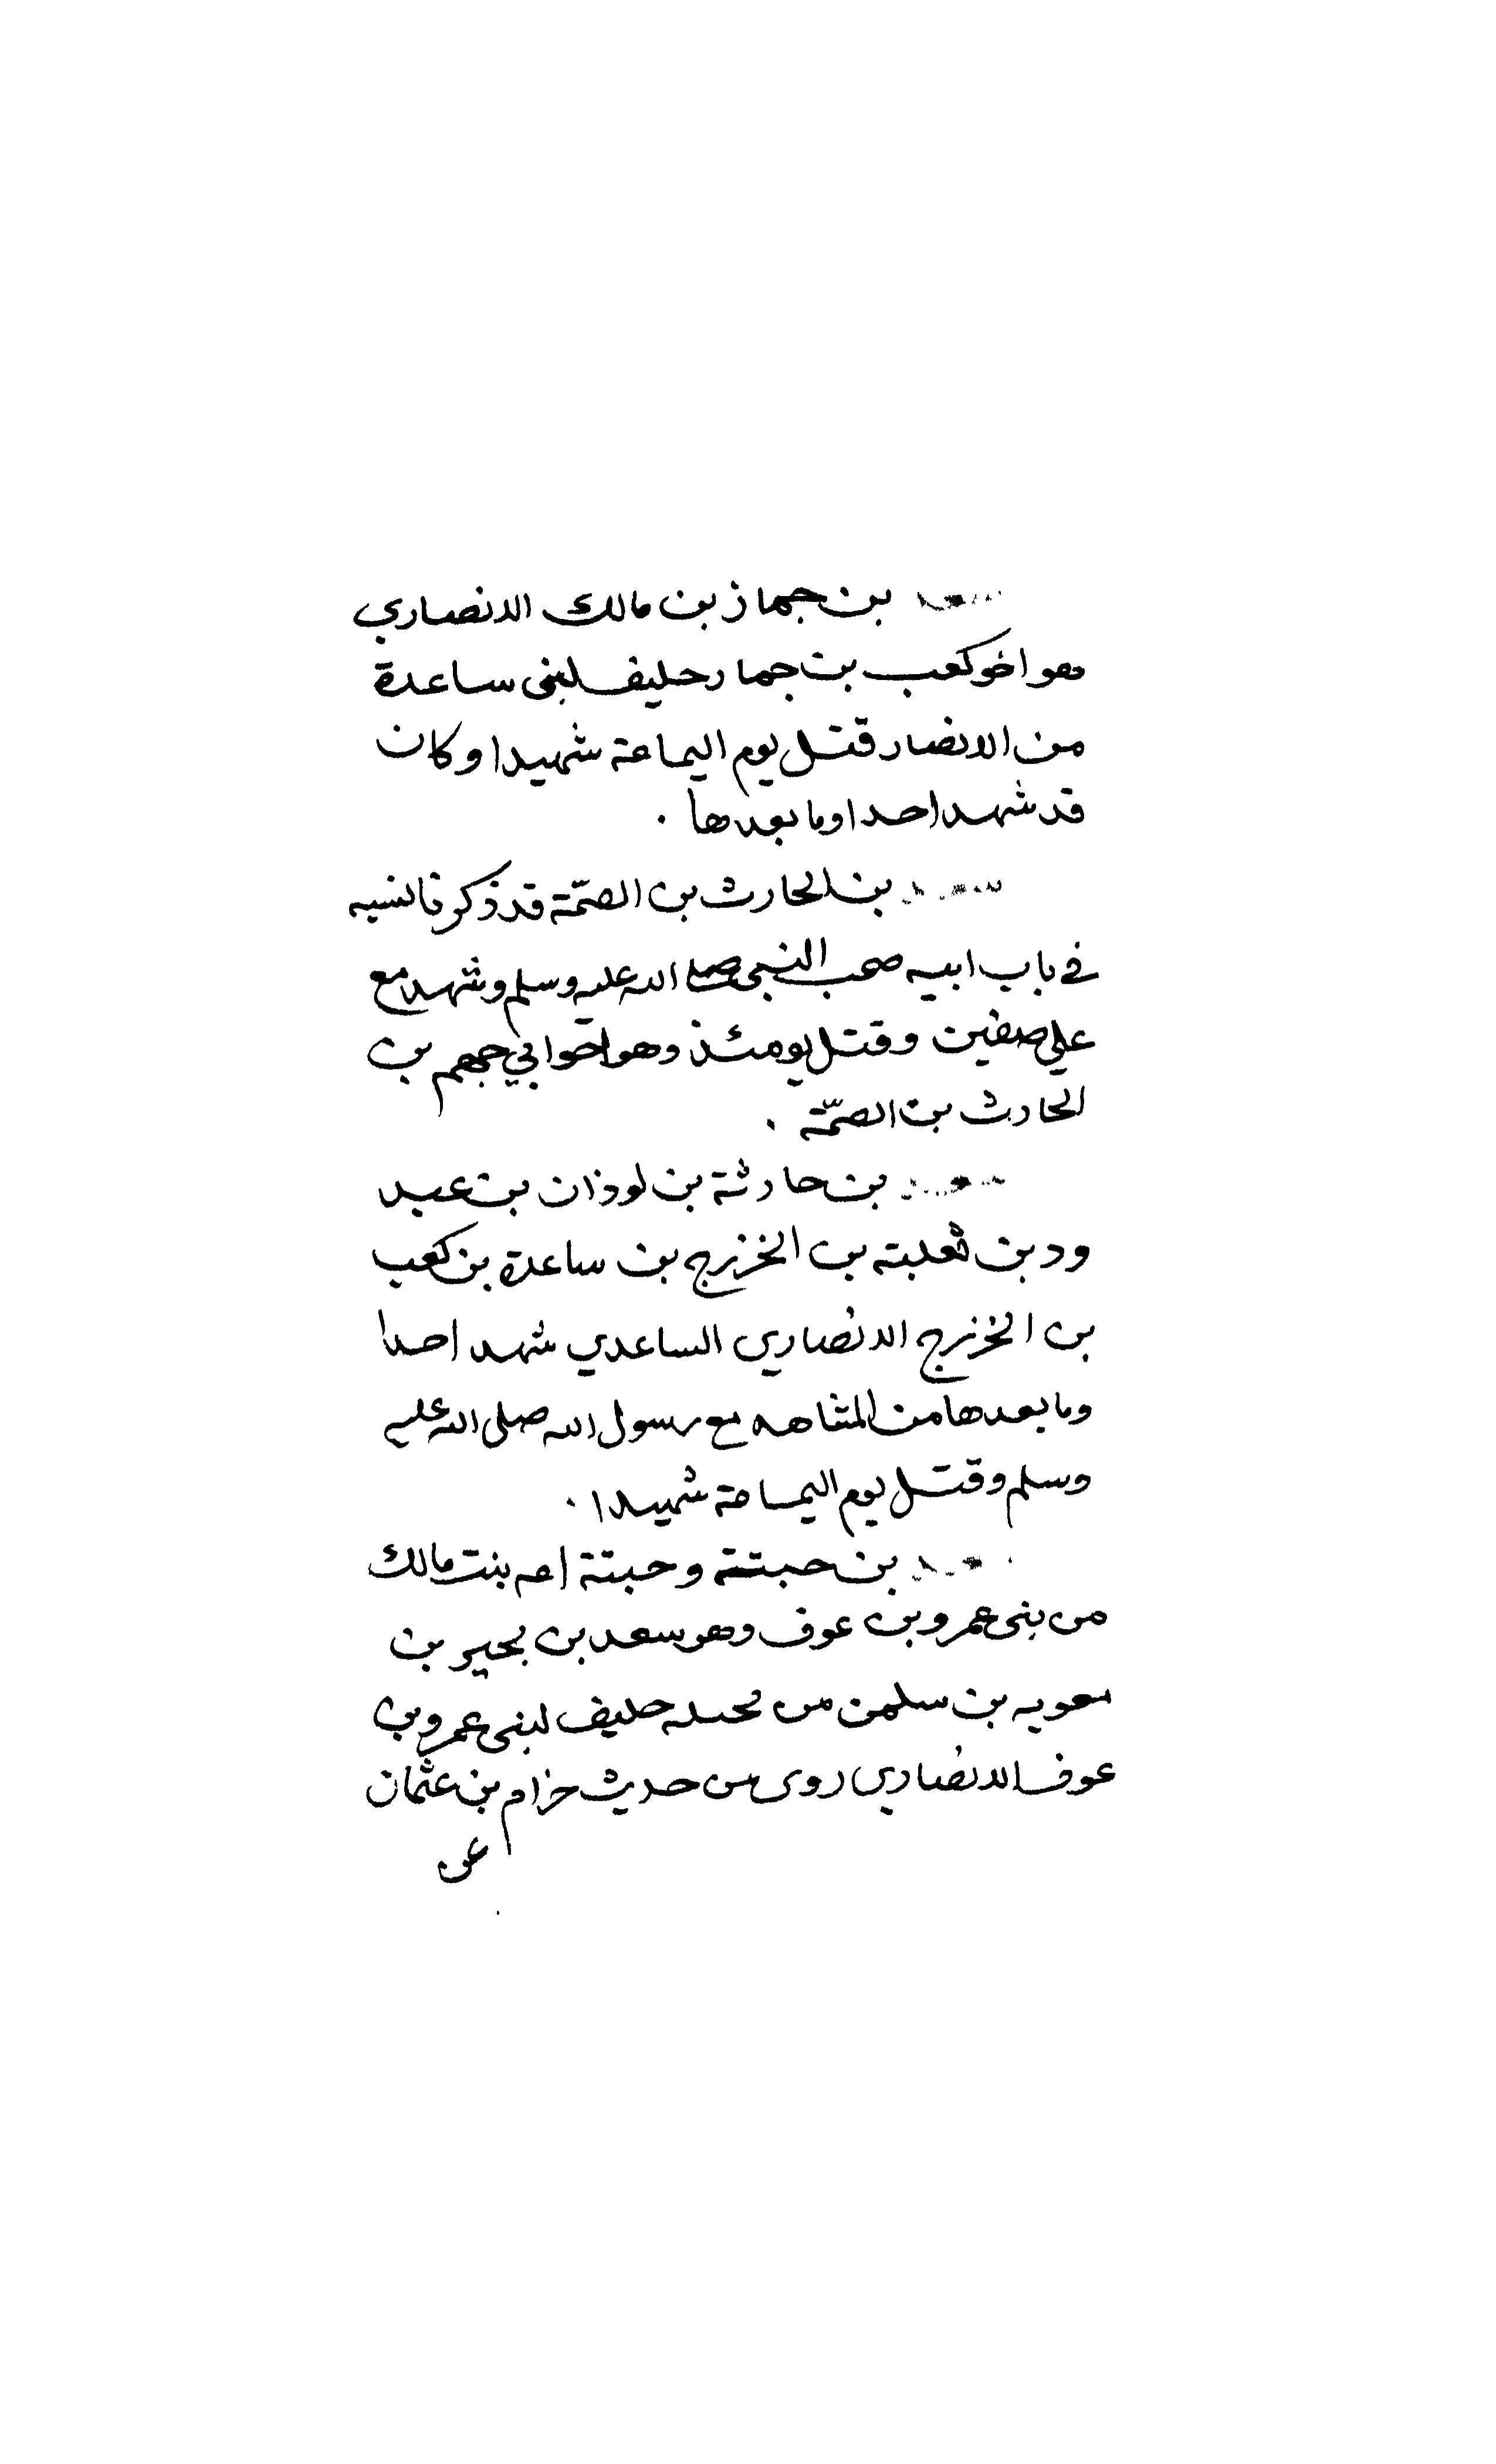 سعد بن جماز بن مالك الانصاري
وهو اخو كعب بن جمار حليف لبنى ساعدة
من الانصار قتل يوم اليمامة شهيدا وكان
قد شهد احدا وما بعدها .
سعد بن الحارث بن الصمّة قد ذكرنا نسبه
في باب ابيه صحب النبي صلى الله عليه وسلم وشهد مع
علي صفين وقتل يومئذ وهو اخوا بي جهم بن
الحارث بن الصمّة .
سعد بن حارثة بن لوذان بن عبد
ود بن ثعلبته بن الخزرج بن ساعدة بن كعب
بن الخزرج الانصاري الساعدي شهد احدا
وما بعدها من المشاهد مع رسول الله صلى الله عليه
وسلم وقتل يوم اليمامة شهيدا .
سعد بن حبتة وحبتة امه بنت مالك
من بنى عمرو بن عوف وهو سعد بن بحير بن
معويه بن سلمن من بحيله حليف لبنى عمرو بن
عوف الانصاري روى من حديث حزام بن عثمان
عن